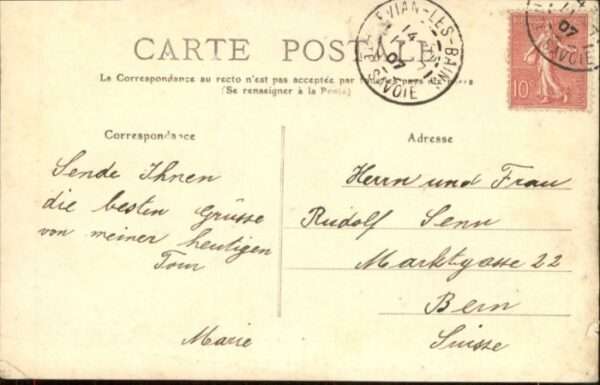 CARTE POSTALE
La Correspondance au recto n'est pas acceptée par tous les pays étrangers
(Se renseigner à la Poste)
EVIAN-LES-BAINS
14
07
SAVOIE
07
SAVOIE
10
Correspondance
Sende Ihnen
die besten Grüsse
von meiner heutigen
Tour
Marie
Adresse
Herrn und Frau
Rudolf Senn
Marktgasse 22
Bern
Suisse